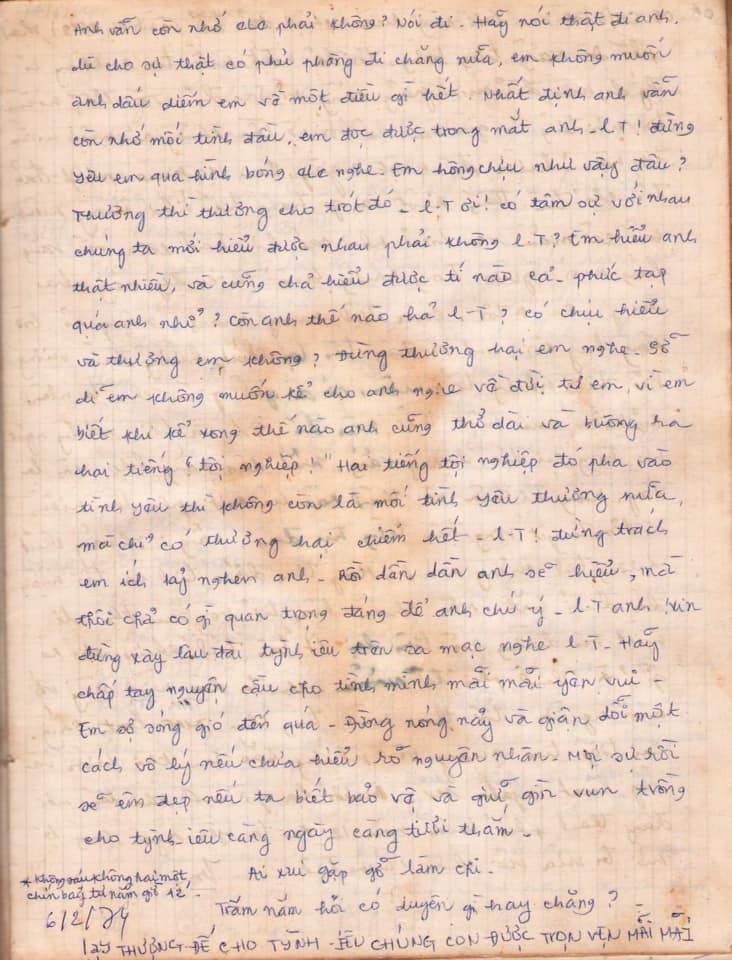 Anh vẫn còn nhớ ClC phải không? Nói đi. Hãy nói thật đi anh.
dù cho sự thật có phủ phàng đi chăng nữa, em không muốn
anh dấu diếm em về một điều gì hết. Nhất định anh vẫn
còn nhớ mối tình đầu, em đọc được trong mắt anh. l.T! đừng
yêu em qua hình bóng ClC nghe. Em hông chịu như vậy đâu?
Thương thì thương cho trót đó. l.T ơi! có tâm sự với nhau
chúng ta mới hiểu được nhau phải không l.T? Em hiểu anh
thật nhiều, và cũng chả hiểu được tí nào cả. phức tạp
quá anh nhỉ? Còn anh thế nào hả l.T? có chịu hiểu
và thương em không? Đừng thương hại em nghe. Sở
dĩ em không muốn kể cho anh nghe về đời tư em, vì em
biết khi kể xong thế nào anh cũng thở dài và buông ra
hai tiếng "tội nghiệp!" Hai tiếng tội nghiệp đó pha vào
tình yêu thì không còn là mối tình yêu thương nữa,
mà chỉ có thương hại chiếm hết. l.T! đừng trách
em ích kỷ nghen anh. Rồi dần dần anh sẽ hiểu, mà
thôi chả có gì quan trọng đáng để anh chú ý. l.T anh! xin
đừng xây lâu đài tỳnh iêu trên sa mạc nghe l.T. Hãy
chấp tay nguyện cầu cho tình mình mãi mãi yên vui.
Em sợ sóng gió đến quá. Đừng nóng nảy và giận dỗi một
cách vô lý nếu chưa hiểu rõ nguyên nhân. Mọi sự rồi
sẽ êm đẹp nếu ta biết bảo vệ và giữ gìn vun trồng
cho tỳnh iêu càng ngày càng tươi thắm.
Ai xui gặp gỡ làm chi.
Trăm năm hỏi có duyên gì hay chăng?
* không sáu không hai một
chín bảy tư năm giờ 12'.
6/2/74
lạy THƯỢNG ĐẾ CHO TỲNH IÊU CHÚNG CON ĐƯỢC TRỌN VẸN MÃI MÃI